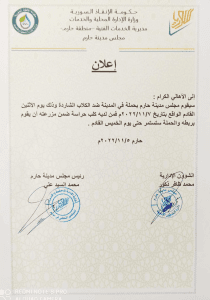 حكومة الإنقاذ السورية
وزارة الإدارة المحلية والخدمات
مديرية الخدمات الفنية - منطقة حارم
مجلس مدينة حارم
إعلان
الى الأهالي الكرام :
سيقوم مجلس مدينة حارم بحملة في المدينة ضد الكلاب الشاردة وذلك يوم الاثنين
القادم الواقع بتاريخ ٢٠٢٢/١١/٧م فمن لديه كلب حراسة ضمن مزرعته أن يقوم
بربطه والحملة ستستمر حتى يوم الخميس القادم .
حارم ٢٠٢٢/١١/٥م
الشؤون الإدارية
محمد ظافر
رئيس مجلس مدينة حارم
محمد السيد علي